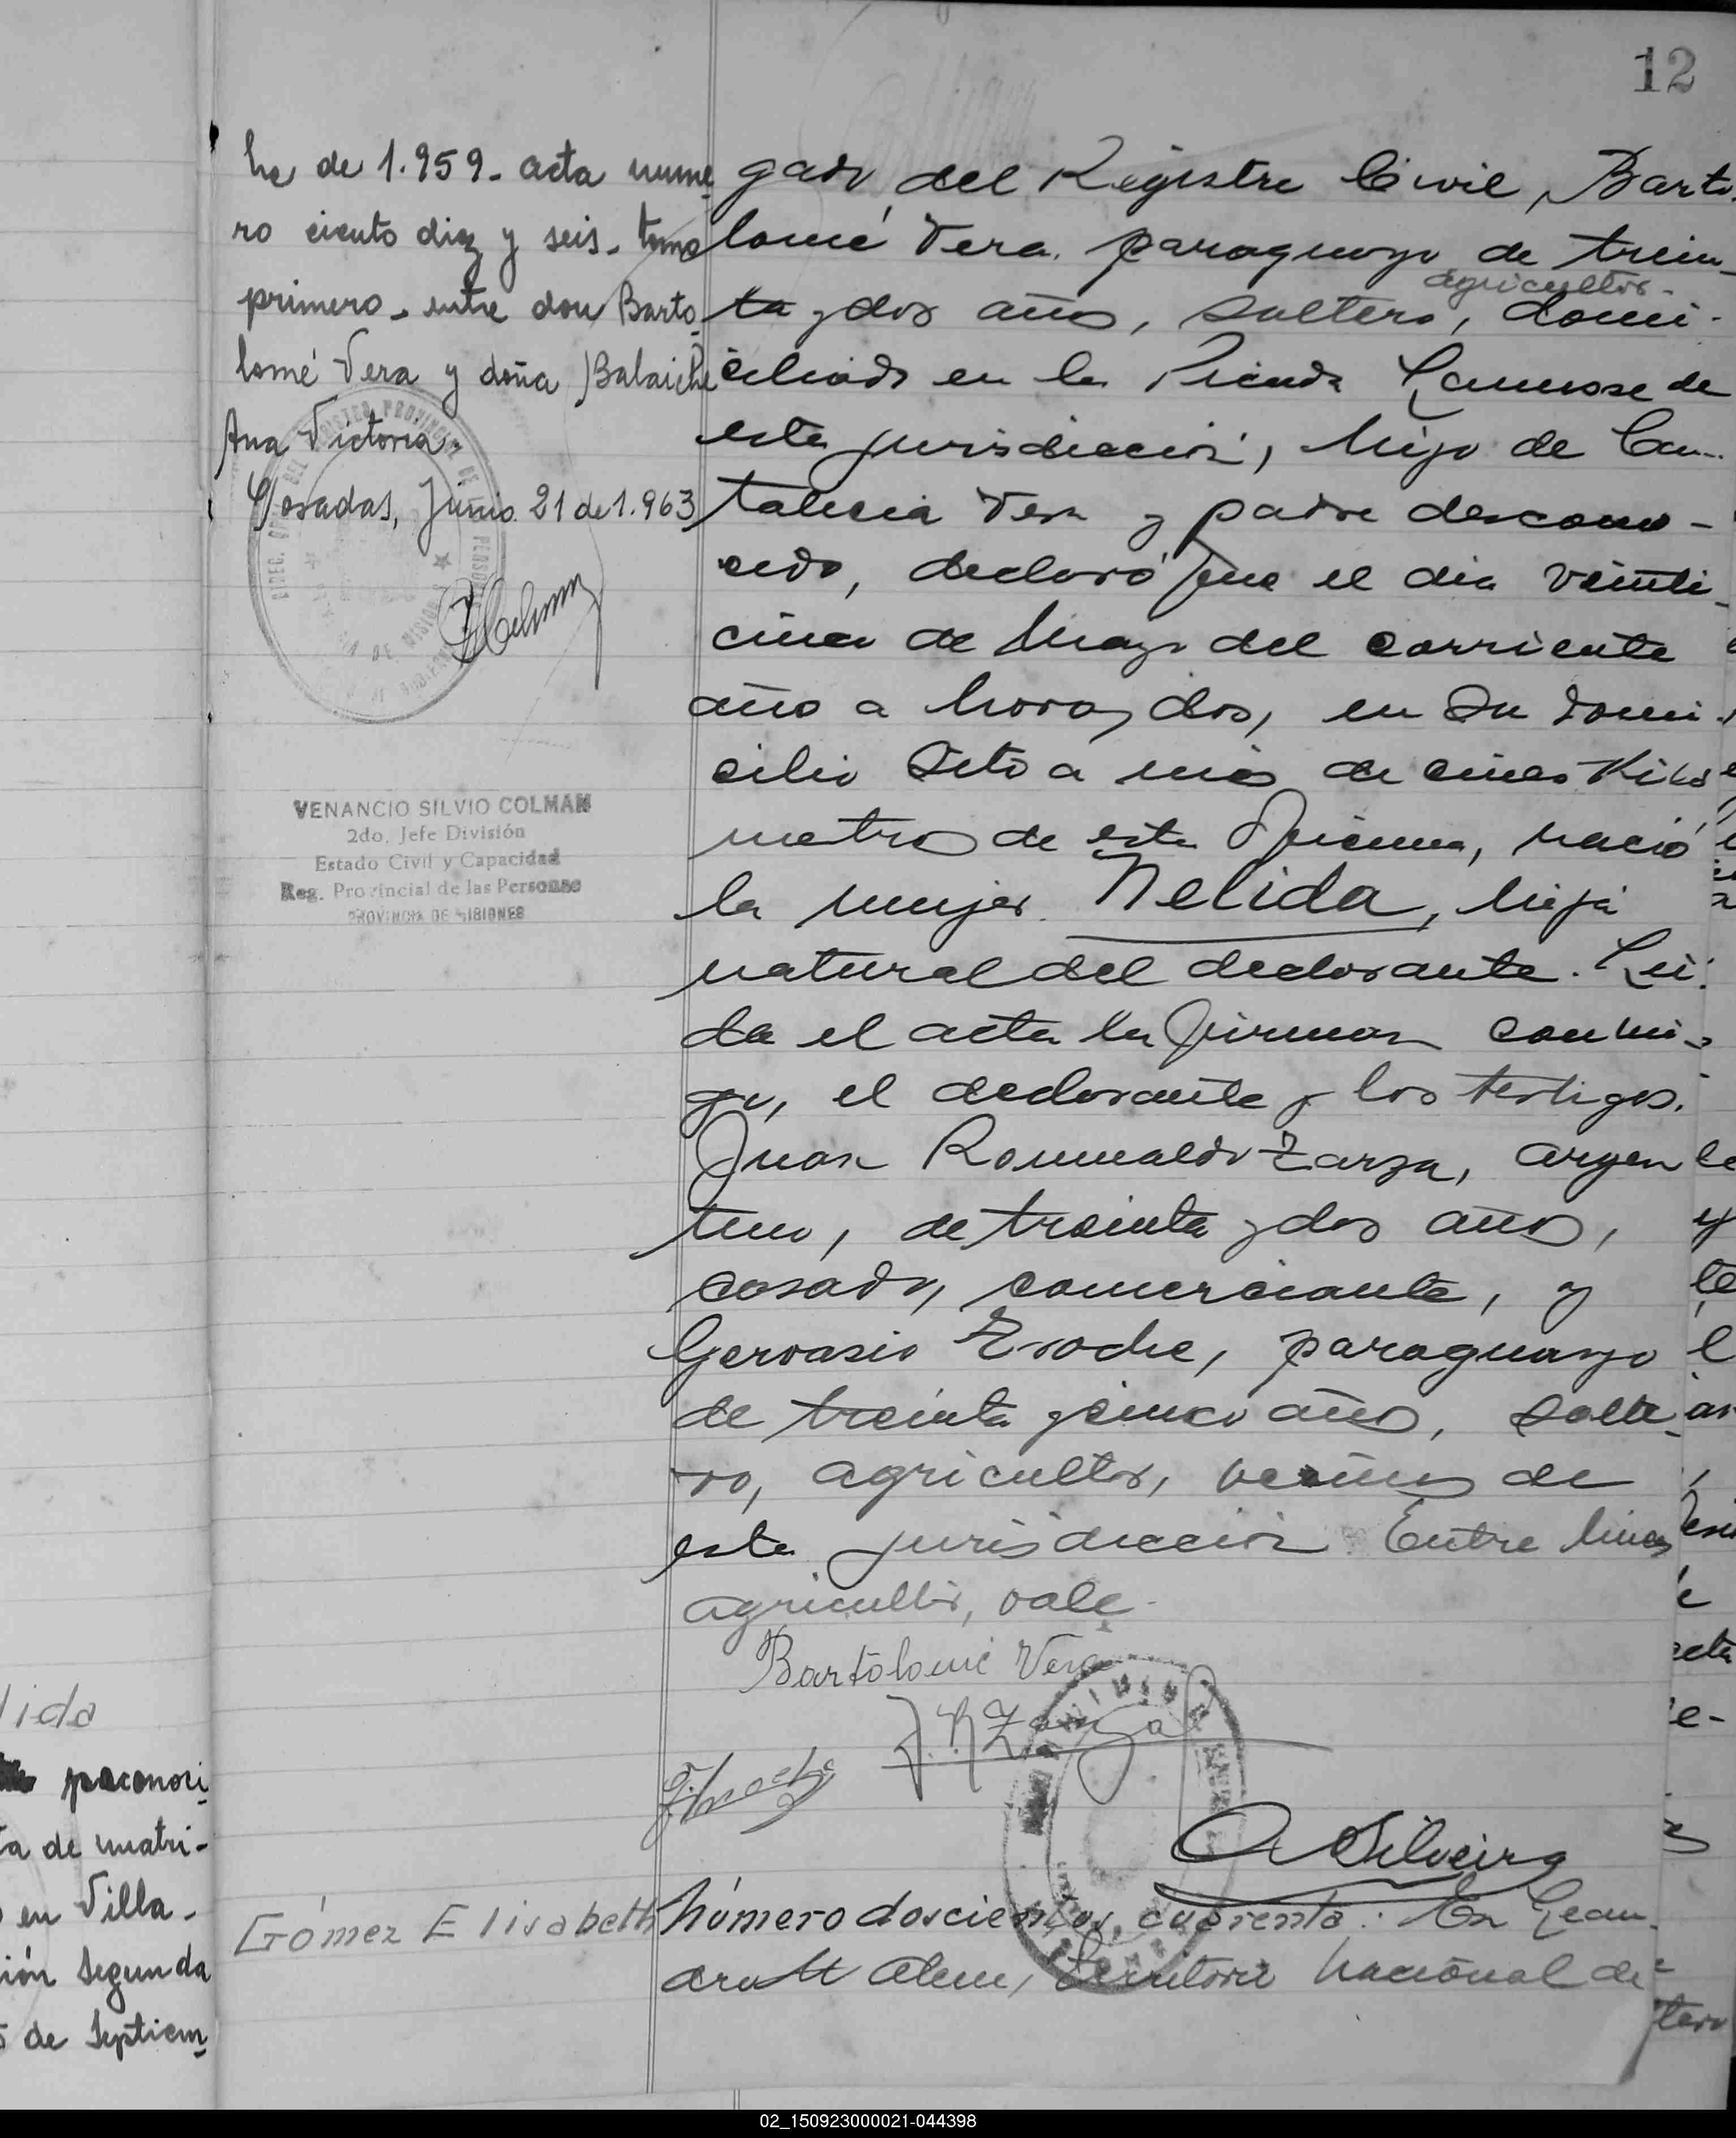 12
he de 1.959- acta núme
ro ciento diez y seis- tomo
primero- entre don Barto
lomé Vera y doña Balaiche
Ana Victoria-
Posadas, Junio 21 de 1.963
VENANCIO SILVIO COLMAN
2do. Jefe División
Estado Civil y Capacidad
Reg. Provincial de las Personas
PROVINCIA DE MISIONES
gado del Registro Civil, Barto
lomé Vera, paraguayo de trein-
agricultor-
ta y dos años, soltero, domi-
ciliado en la Picada de
esta jurisdicción, hijo de Can-
talicia Vera y padre descono-
cido, declaró que el dia veinti-
cinco de Mayo del corriente
año a horas dos, en su domi-
cilio sito a más de cinco Kiló
metros de esta Oficina, nació
la mujer Nelida, hija
natural del declarante. Leí-
da el acta la firman conmi-
go, el declarante y los testigos.
Juan Romualdo Zarza, argen
tino, de treinta y dos años,
casado, comerciante, y
Gervasio paraguayo
de treinta y cinco años, solte-
ro, agricultor, vecinos de
esta jurisdicción. Entre lineas
agricultor, vale-
Bartolomé Vera
J.R. Zarza
A Silveira
lida
paconori
ta de matri-
en Villa-
ión Segunda
de Septiem
Gómez Elisabeth
Número doscientos cuarenta: En Lean-
dro N Alem, Territorio Nacional de
02_150923000021-044398